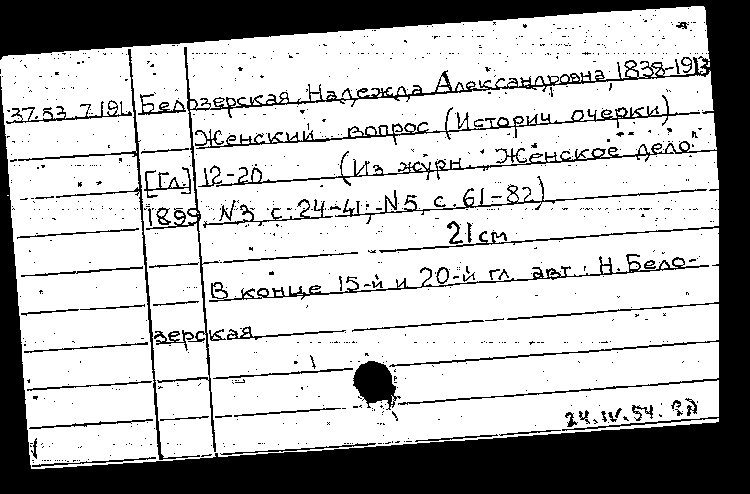 37.53.7.191. Белозерская, Надежда Александровна, 1838-1913
Женский вопрос (Историч. очерки)
[Гл.] 12-20. (Из журн. „Женское дело"
1899, N3, с. 24-41; N5, с. 61-82).
21 см.
В конце 15-й и 20-й гл. авт.: Н. Бело-
зерская.
24.IV.54.